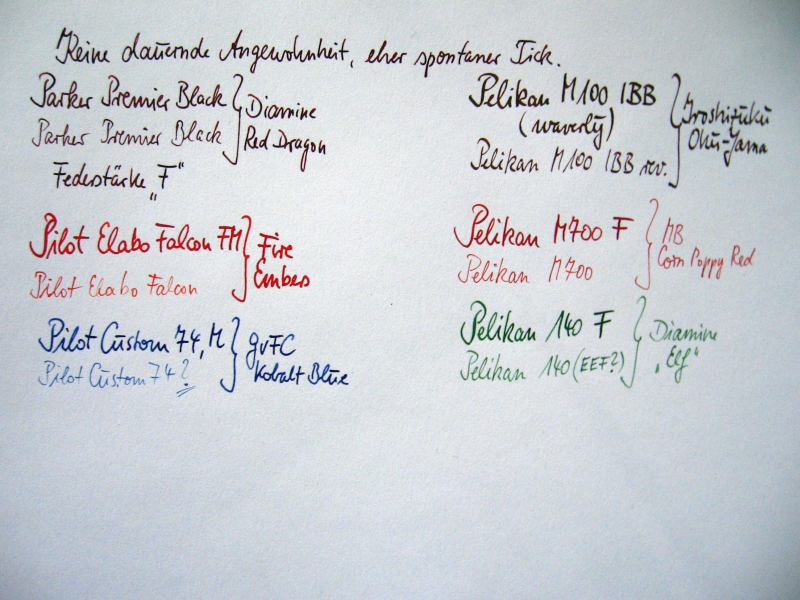 Keine dauernde Angewohnheit, eher spontaner Tick.
Parker Premier Black
Parker Premier Black
Diamine
Red Dragon
Federstärke „F“
Pelikan M100 IBB
(waverly)
Pelikan M100 IBB rev.
Iroshizuku
Oku-Yama
Pilot Elabo Falcon FM
Pilot Elabo Falcon
Fire
Embers
Pelikan M700 F
Pelikan M700
MB
Corn Poppy Red
Pilot Custom 74, M
Pilot Custom 74?
GvFC
Kobalt Blue
Pelikan 140 F
Pelikan 140 (EEF?)
Diamine
„Elf“